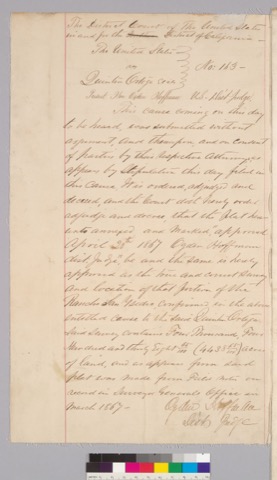 The District Court of The United States
in and for the District of California
The United States
vs
No. 163 -
Present Hon Ogden Hoffman U.S. Dist Judge
This cause coming on this day
to be heard, was submitted without
argument, and on consent
of parties by their respective Attorneys as
appears by Stipulation this day filed in
this Cause, It is ordered, adjudged and
decreed, and the Court doth hereby order
adjudge and decree that the Plat
unto annexed and Marked, "approved
April 20th 1867 Ogden Hoffman
Dist Judge", be and the same is hereby
approved as the true and correct Survey
and location of that portion of the
Rancho San Pedro Confirmed, in the above
entitled cause to the said
Said Survey contains Four Thousand Four
Hundred and thirty Eight
of land, and as appears from said
plat was made from Field notes on
record in Surveyor Generals Office in
March 1867 -
Ogden Hoffman
Judge